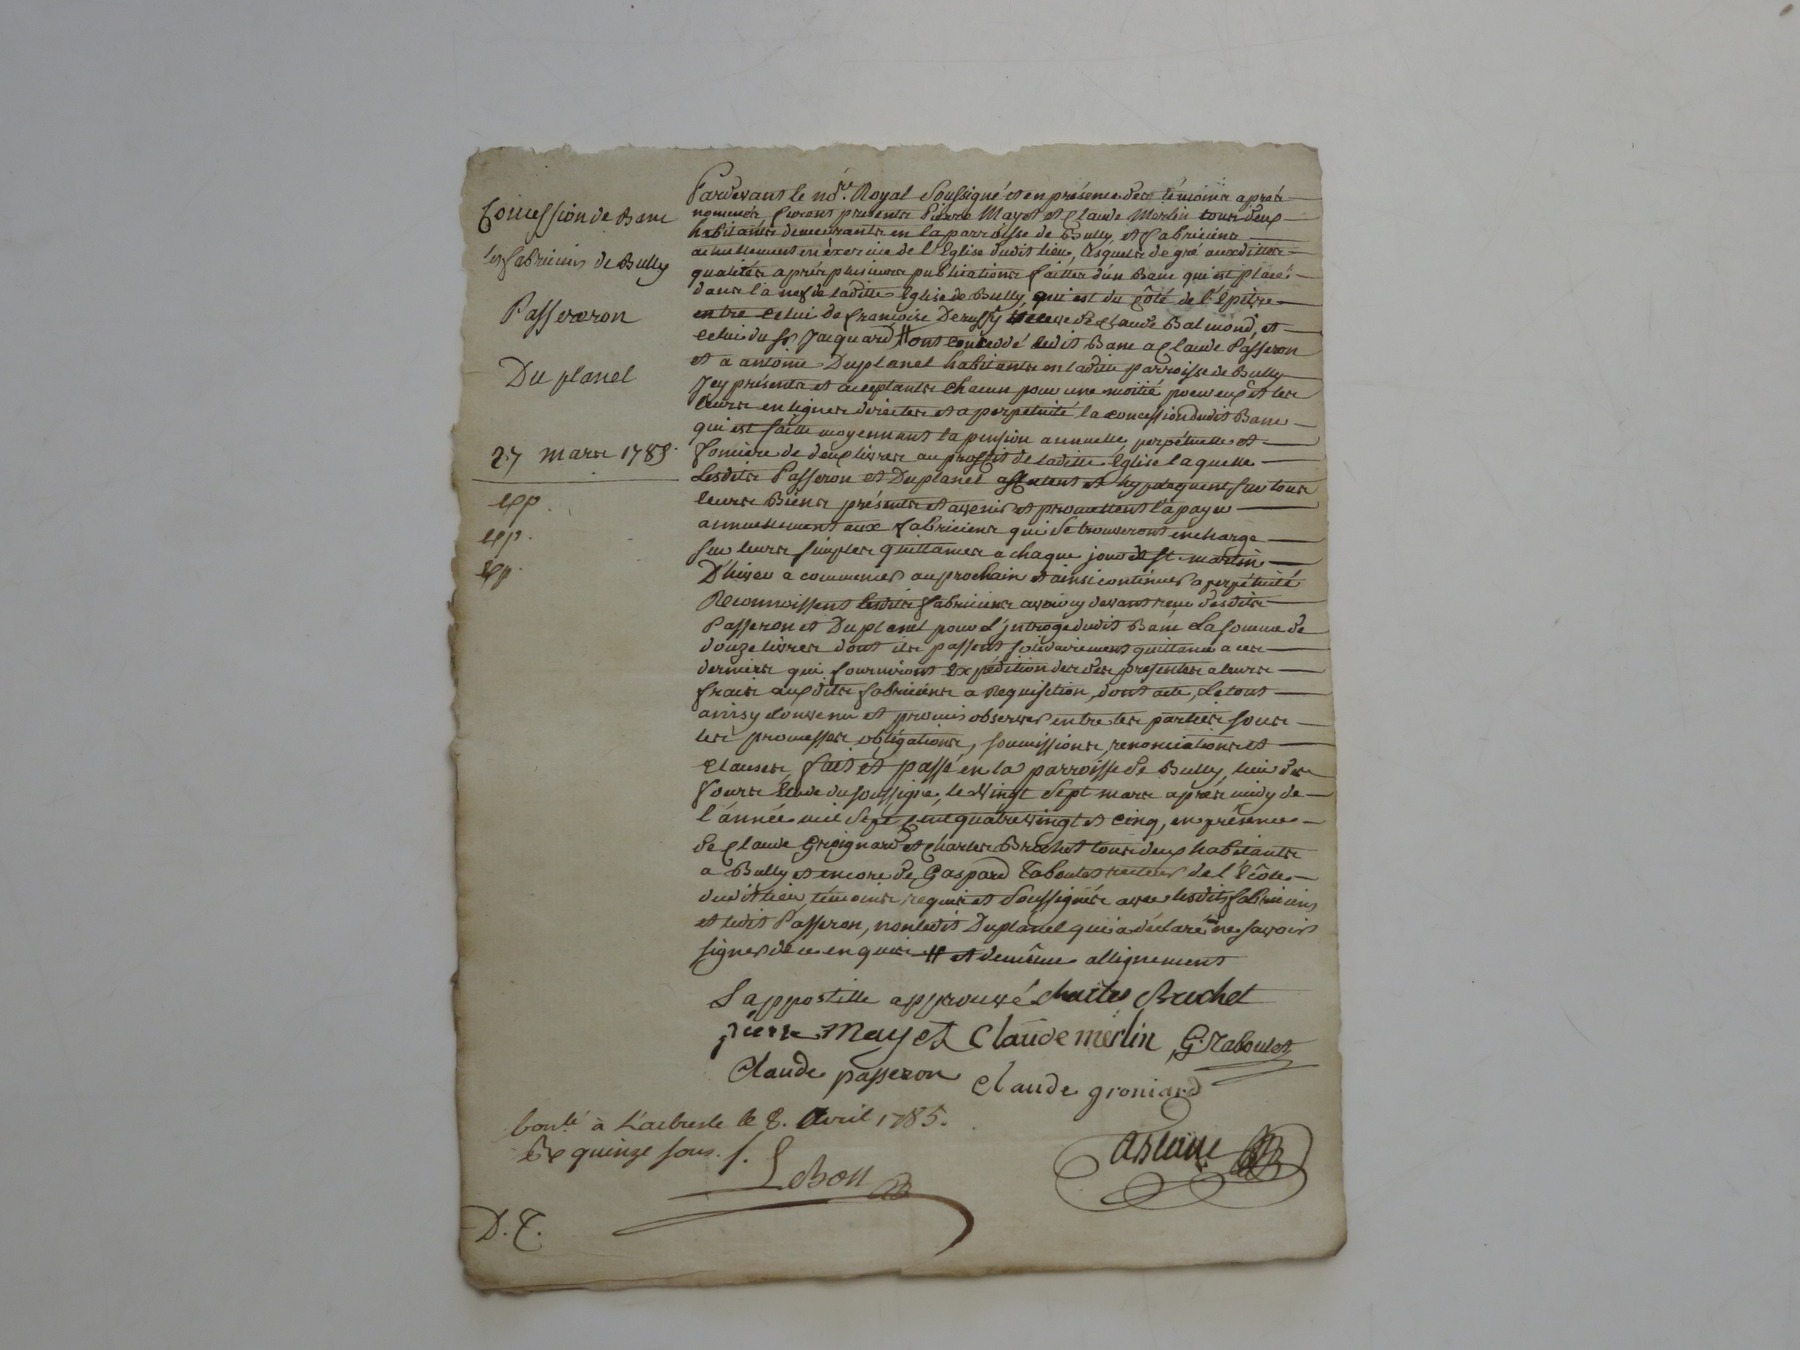 Concession de Banc
les fabriciens de Bully
Passeron
Du planel
27 mars 1785.
Exp.
Exp.
Exp.
Pardevant le nore. Royal soussigné et en présence des témoins après
nommés, furent présents Pierre Mayet et Claude Merlin tous deux
habitants demeurants en la parroisse de Bully, et fabriciens
actuellement en éxercice de l'Eglise dudit lieu, lesquels de gré auxdittes
qualités après plusieurs publications faittes d'un Banc qui est placé
dans la nef de laditte Eglise de Bully, qui est du côté de l'Epitre
entre celui de francoise Derussy veuve de Claude Balmond, et
celui du Sr Jacquard, # ont concédé ledit Banc a Claude Passeron
et a antoine Duplanel habitants en laditte parroisse de Bully
Icy présents et acceptants chacun pour une moitié pour eux et les
leurs en lignes directes et a perpétuité la concession dudit Banc
qui est faitte moyennant la pension annuelle, perpétuelle et
fonciere de deux livres au proffit de laditte Eglise laquelle
Lesdits Passeron et Duplanel assurent et hypotequent sur tous
leurs Biens présents et avenir et promettent la payer
annuellement aux fabriciens qui se trouveront en charge
sur leurs simples quittances a chaque jour de st. martin
D'hiver a commencer au prochain et ainsi continuer a perpétuité
Reconnoissent lesdits fabriciens avoir cy devant reçu desdits
Passeron et Duplanel pour l'introge dudit Banc la somme de
douze livres dont ils passent solidairement quittance a ces
derniers qui fourniront Expédition des présentes a leurs
frais auxdits fabriciens a Requisition, dont acte, Le tout
ainsy convenu et promis observer entre les parties sous
les promesses, obligations, soumissions, renonciations et
clauses, fait et passé en la parroisse de Bully, lieu des
fours Etude du soussigné, le vingt sept mars après midy de
l'année mil sept cent quatre vingt et cinq, en présence
de Claude Groignard et Charles Brochet tous deux habitants
a Bully et encore de Gaspard Taboulet recteur de l'Ecôle
dudit lieu, témoins requis et soussignés avec lesdits fabriciens
et ledit Passeron, non ledit Duplanel qui a déclaré ne savoir
signer de ce enquis # et de même allignement
L'appostille approuvé charles Brochet
pierre Mayet Claude merlin G. Taboulet
Claude passeron claude groniard
Con.lé à L'arbresle le 8. Avril 1785.
Rx quinze sous. /.
Lebon
D. T.